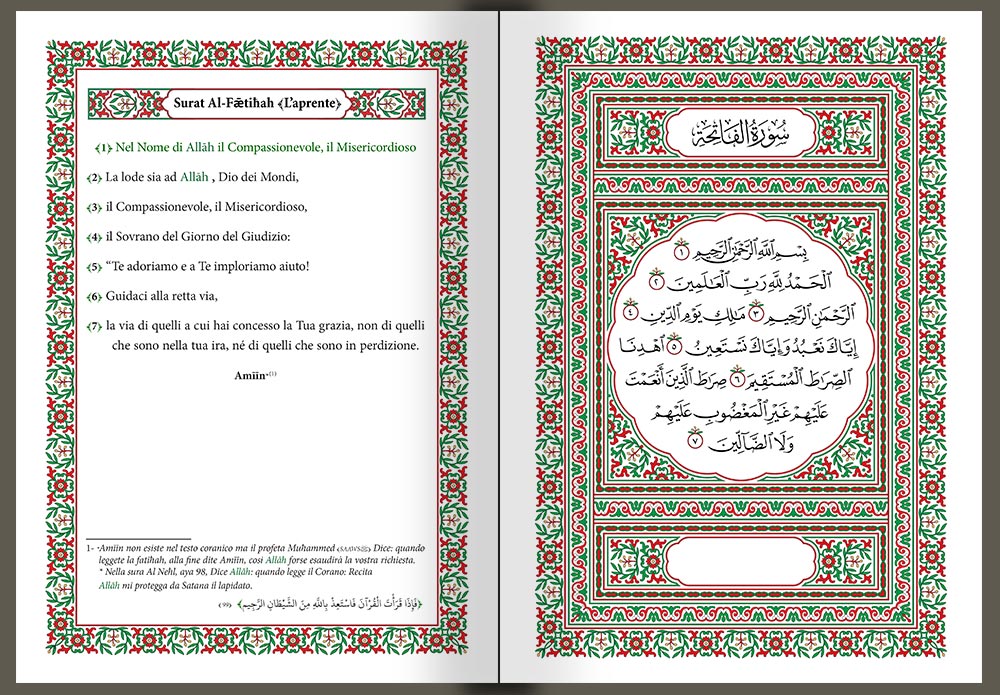 Surat Al-Fǣtiħah ﴾L'aprente﴿
﴾1﴿ Nel Nome di Allāh il Compassionevole, il Misericordioso
﴾2﴿ La lode sia ad Allāh , Dio dei Mondi,
﴾3﴿ il Compassionevole, il Misericordioso,
﴾4﴿ il Sovrano del Giorno del Giudizio:
﴾5﴿ “Te adoriamo e a Te imploriamo aiuto!
﴾6﴿ Guidaci alla retta via,
﴾7﴿ la via di quelli a cui hai concesso la Tua grazia, non di quelli
che sono nella tua ira, né di quelli che sono in perdizione.
Amīīn*(1)
1- *Amīīn non esiste nel testo coranico ma il profeta Muħammed Dice: quando
leggete la fatiħah, alla fine dite Amīīn, così Allāh forse esaudirà la vostra richiesta.
* Nella sura Al Neħl, aya 98, Dice Allāh: quando legge il Corano: Recita
Allāh mi protegga da Satana il lapidato.
﴿فَإِذَا قَرَأْتَ الْقُرْآنَ فَاسْتَعِذْ بِاللَّهِ مِنَ الشَّيْطَانِ الرَّجِيمِ﴾ (٩٩)
سُورَةُ الفَاتِحَةِ
بِسْمِ ٱللَّهِ ٱلرَّحْمَٰنِ ٱلرَّحِيمِ ١
ٱلْحَمْدُ لِلَّهِ رَبِّ ٱلْعَٰلَمِينَ ٢
ٱلرَّحْمَٰنِ ٱلرَّحِيمِ ٣ مَٰلِكِ يَوْمِ ٱلدِّينِ ٤
إِيَّاكَ نَعْبُدُ وَإِيَّاكَ نَسْتَعِينُ ٥ ٱهْدِنَا
ٱلصِّرَٰطَ ٱلْمُسْتَقِيمَ ٦ صِرَٰطَ ٱلَّذِينَ أَنْعَمْتَ
عَلَيْهِمْ غَيْرِ ٱلْمَغْضُوبِ عَلَيْهِمْ
وَلَا ٱلضَّآلِّينَ ٧